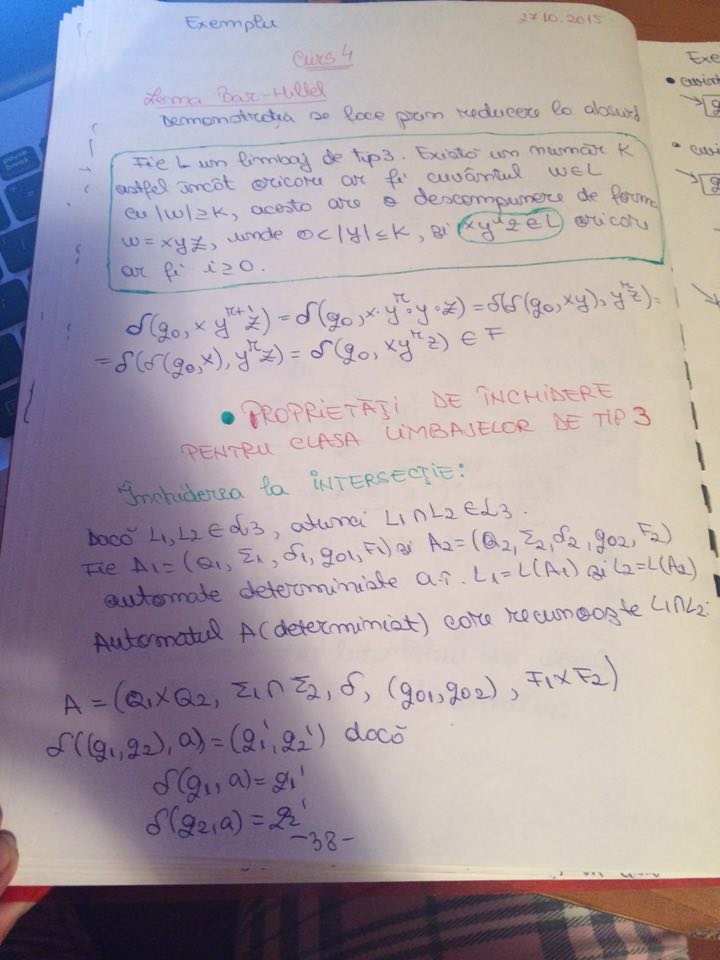 Exemplu 27.10.2015
Curs 4
Lema Bar-Hillel
Demonstrația se face prin reducere la absurd
Fie L un limbaj de tip 3. Există un număr K
astfel încât oricare ar fi cuvântul w∈L
cu |w|≥K, acesta are o descompunere de forma
w=xyz, unde 0<|y|≤K, și xyⁱz∈L oricare
ar fi i≥0.
δ(q₀, xyⁿ⁺¹z) = δ(q₀, x·yⁿ·y·z) = δ(δ(q₀, xy), yⁿz) =
= δ(δ(q₀,x), yⁿz) = δ(q₀, xyⁿz) ∈ F
• PROPRIETĂȚI DE ÎNCHIDERE
PENTRU CLASA LIMBAJELOR DE TIP 3
Închiderea la INTERSECȚIE:
Dacă L₁,L₂∈ℒ₃, atunci L₁∩L₂∈ℒ₃.
Fie A₁=(Q₁, Σ₁, δ₁, q₀₁, F₁) și A₂=(Q₂, Σ₂, δ₂, q₀₂, F₂)
automate deterministe a.î. L₁=L(A₁) și L₂=L(A₂)
Automatul A(determinist) care recunoaște L₁∩L₂:
A = (Q₁×Q₂, Σ₁∩Σ₂, δ, (q₀₁,q₀₂), F₁×F₂)
δ((q₁,q₂),a)=(q₁',q₂') dacă
δ(q₁,a)=q₁'
δ(q₂,a)=q₂'
-38-
Exe
• cuvin
• cuvi
pause
break